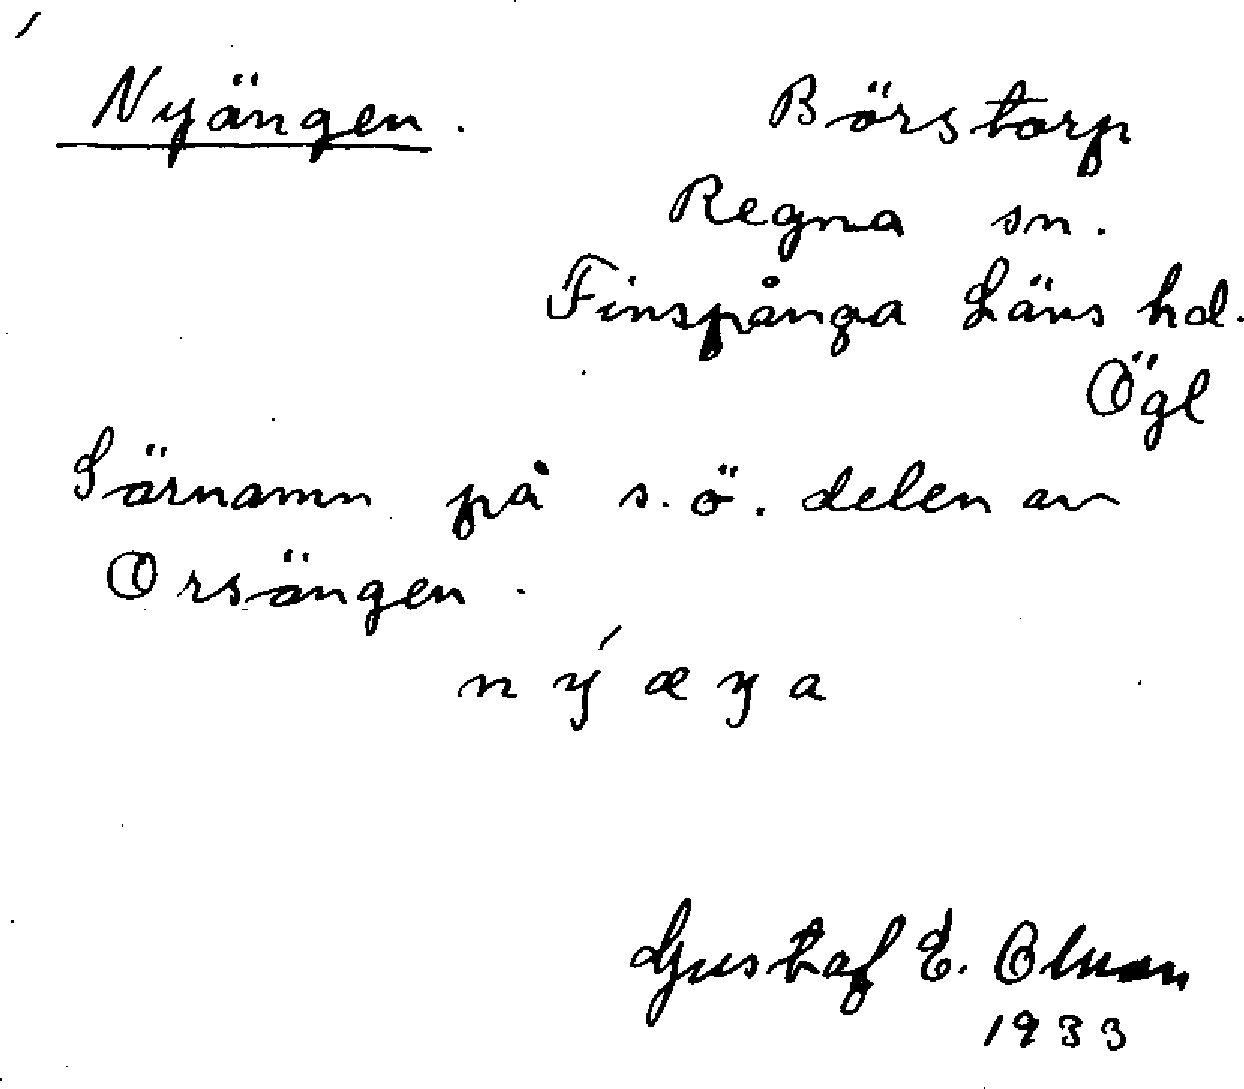 Nyängen.
Börstorp
Regna sn.
Finspånga Läns hd.
Ögl
Särnamn på s.ö. delen av
Orsängen.
ný æŋa
Gustaf E. Olsson
1933